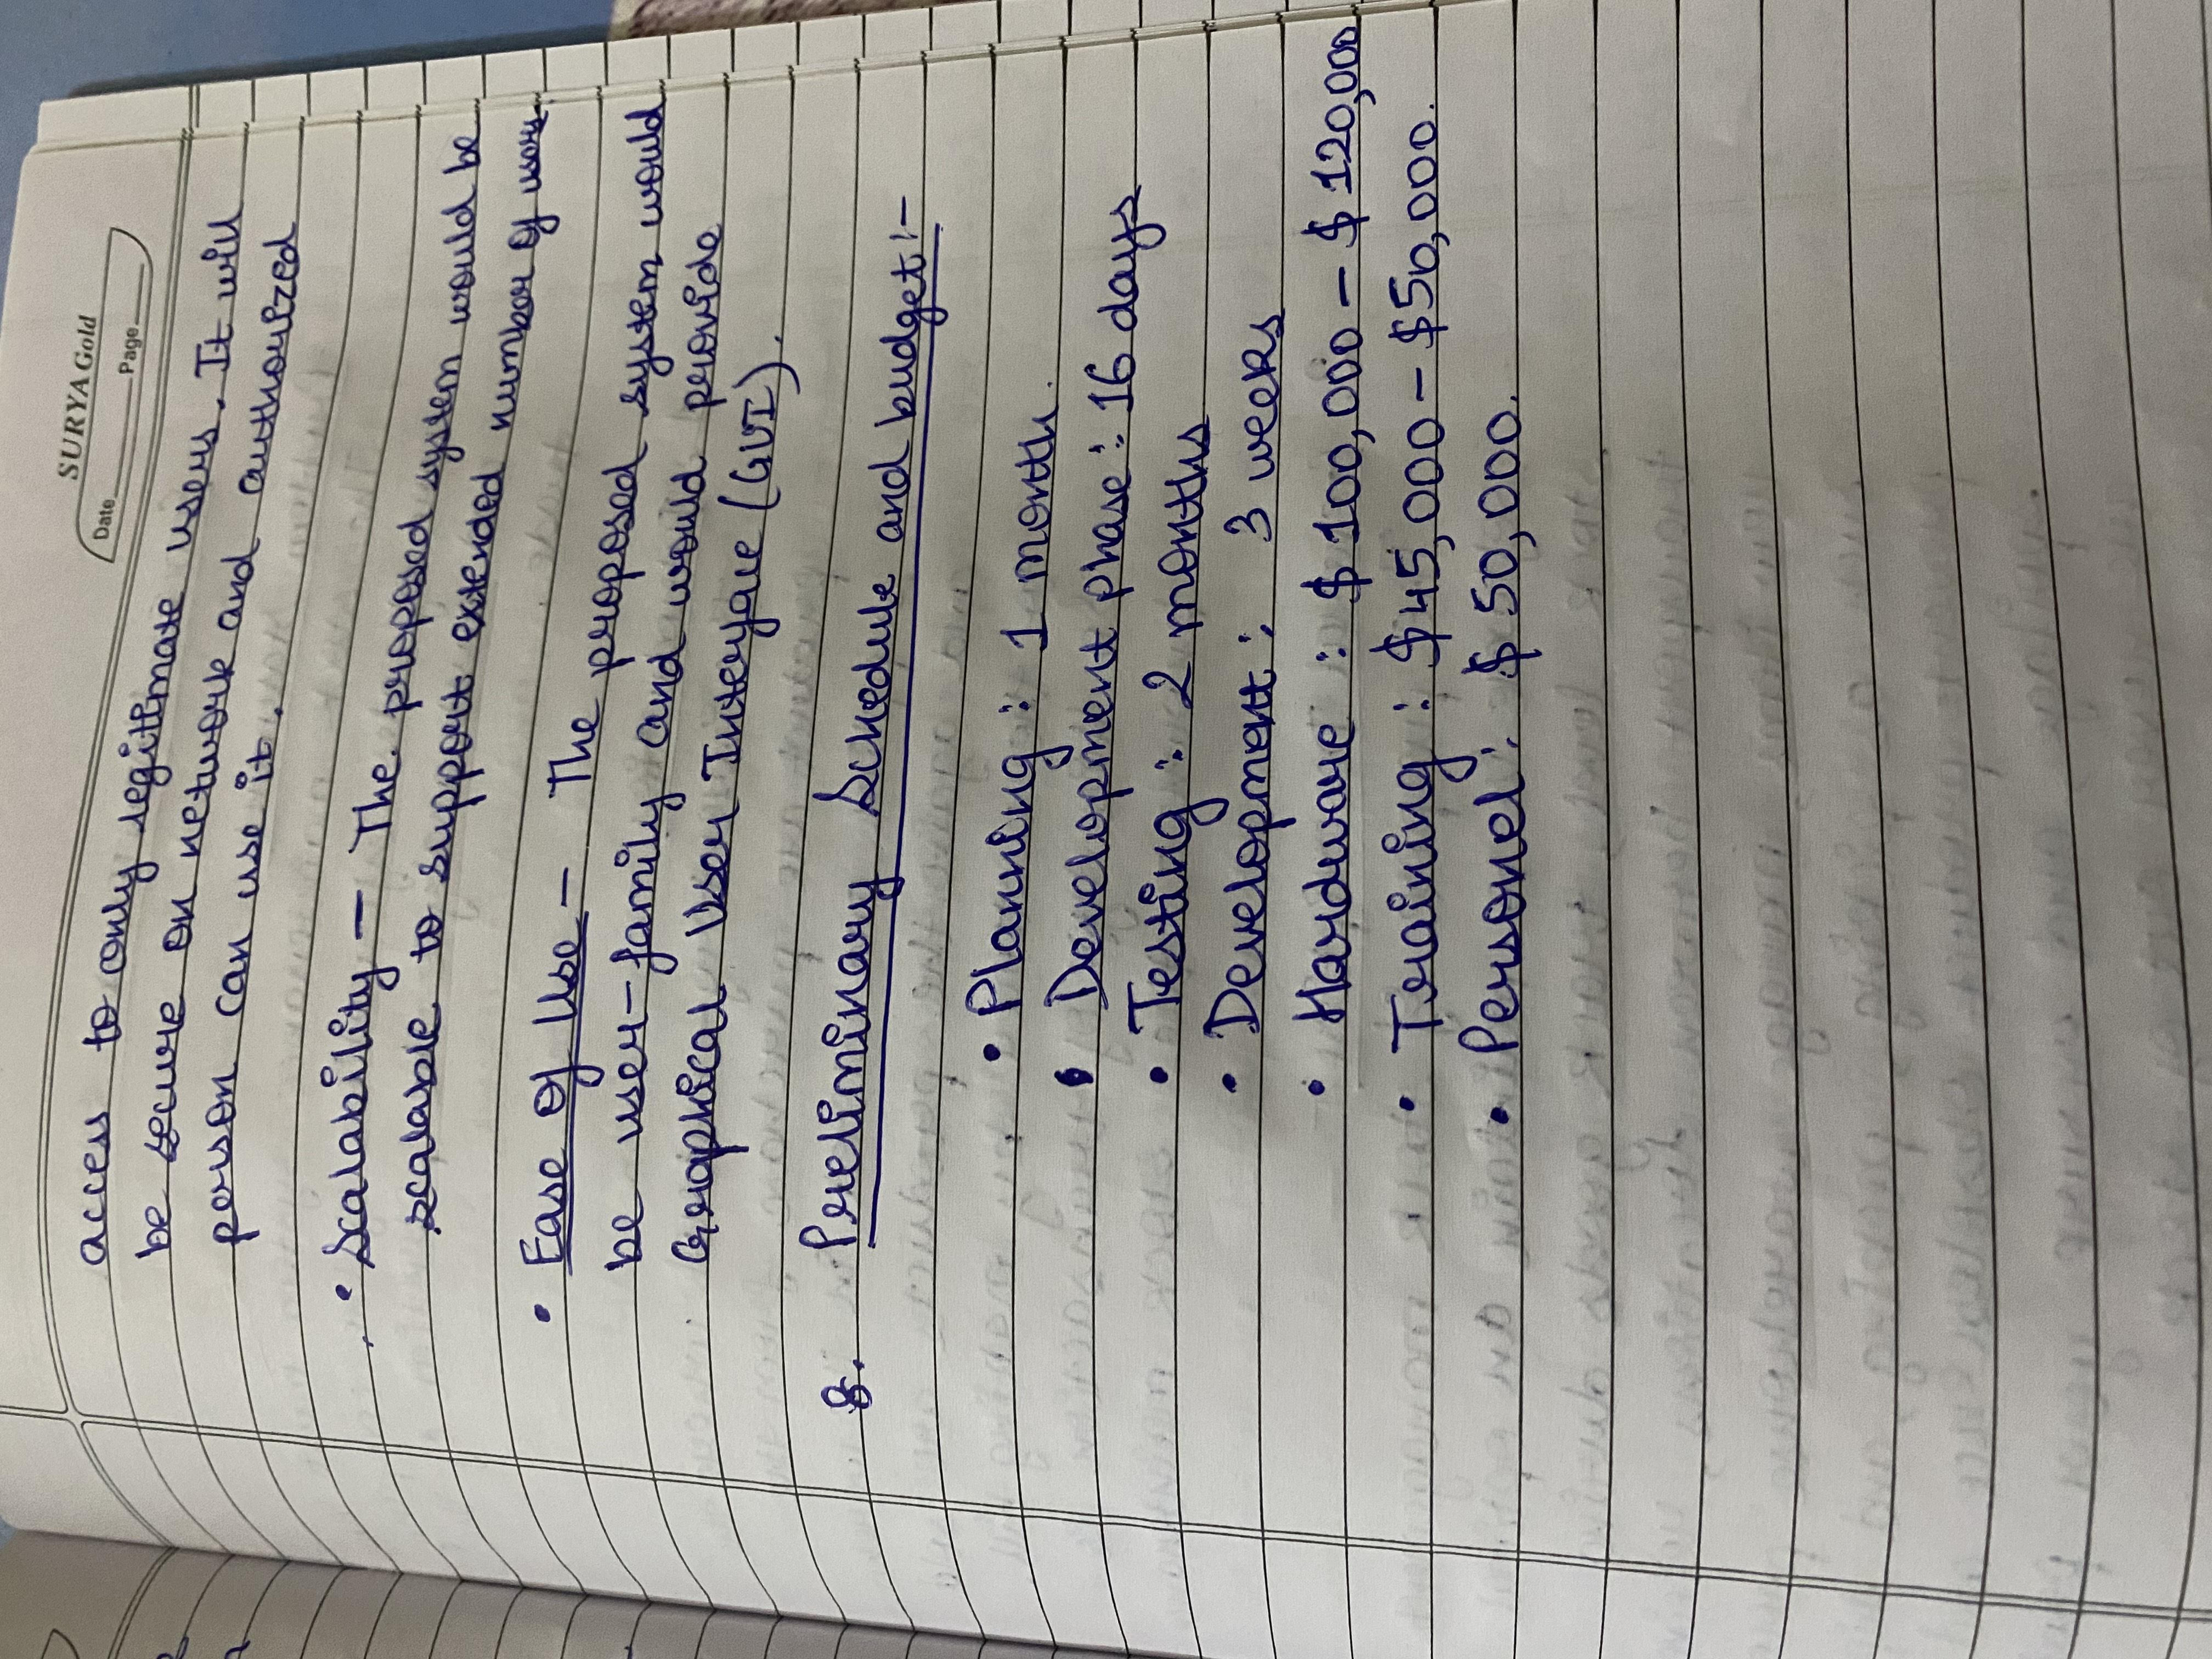 SURYA Gold
Date
Page
access to only legitimate users. It will
be secure on network and authorized
person can use it.
• Scalability – The proposed system would be
scalable to support extended number of users.
• Ease of Use – The proposed system would
be user-family and would provide
Graphical User Interface (GUI).
8. Preliminary Schedule and budget:-
• Planning : 1 month.
• Development phase : 16 days
• Testing : 2 months
• Development : 3 weeks
• Hardware : $ 100,000 – $ 120,000
• Training : $45,000 – $50,000.
• Personel : $ 50,000.